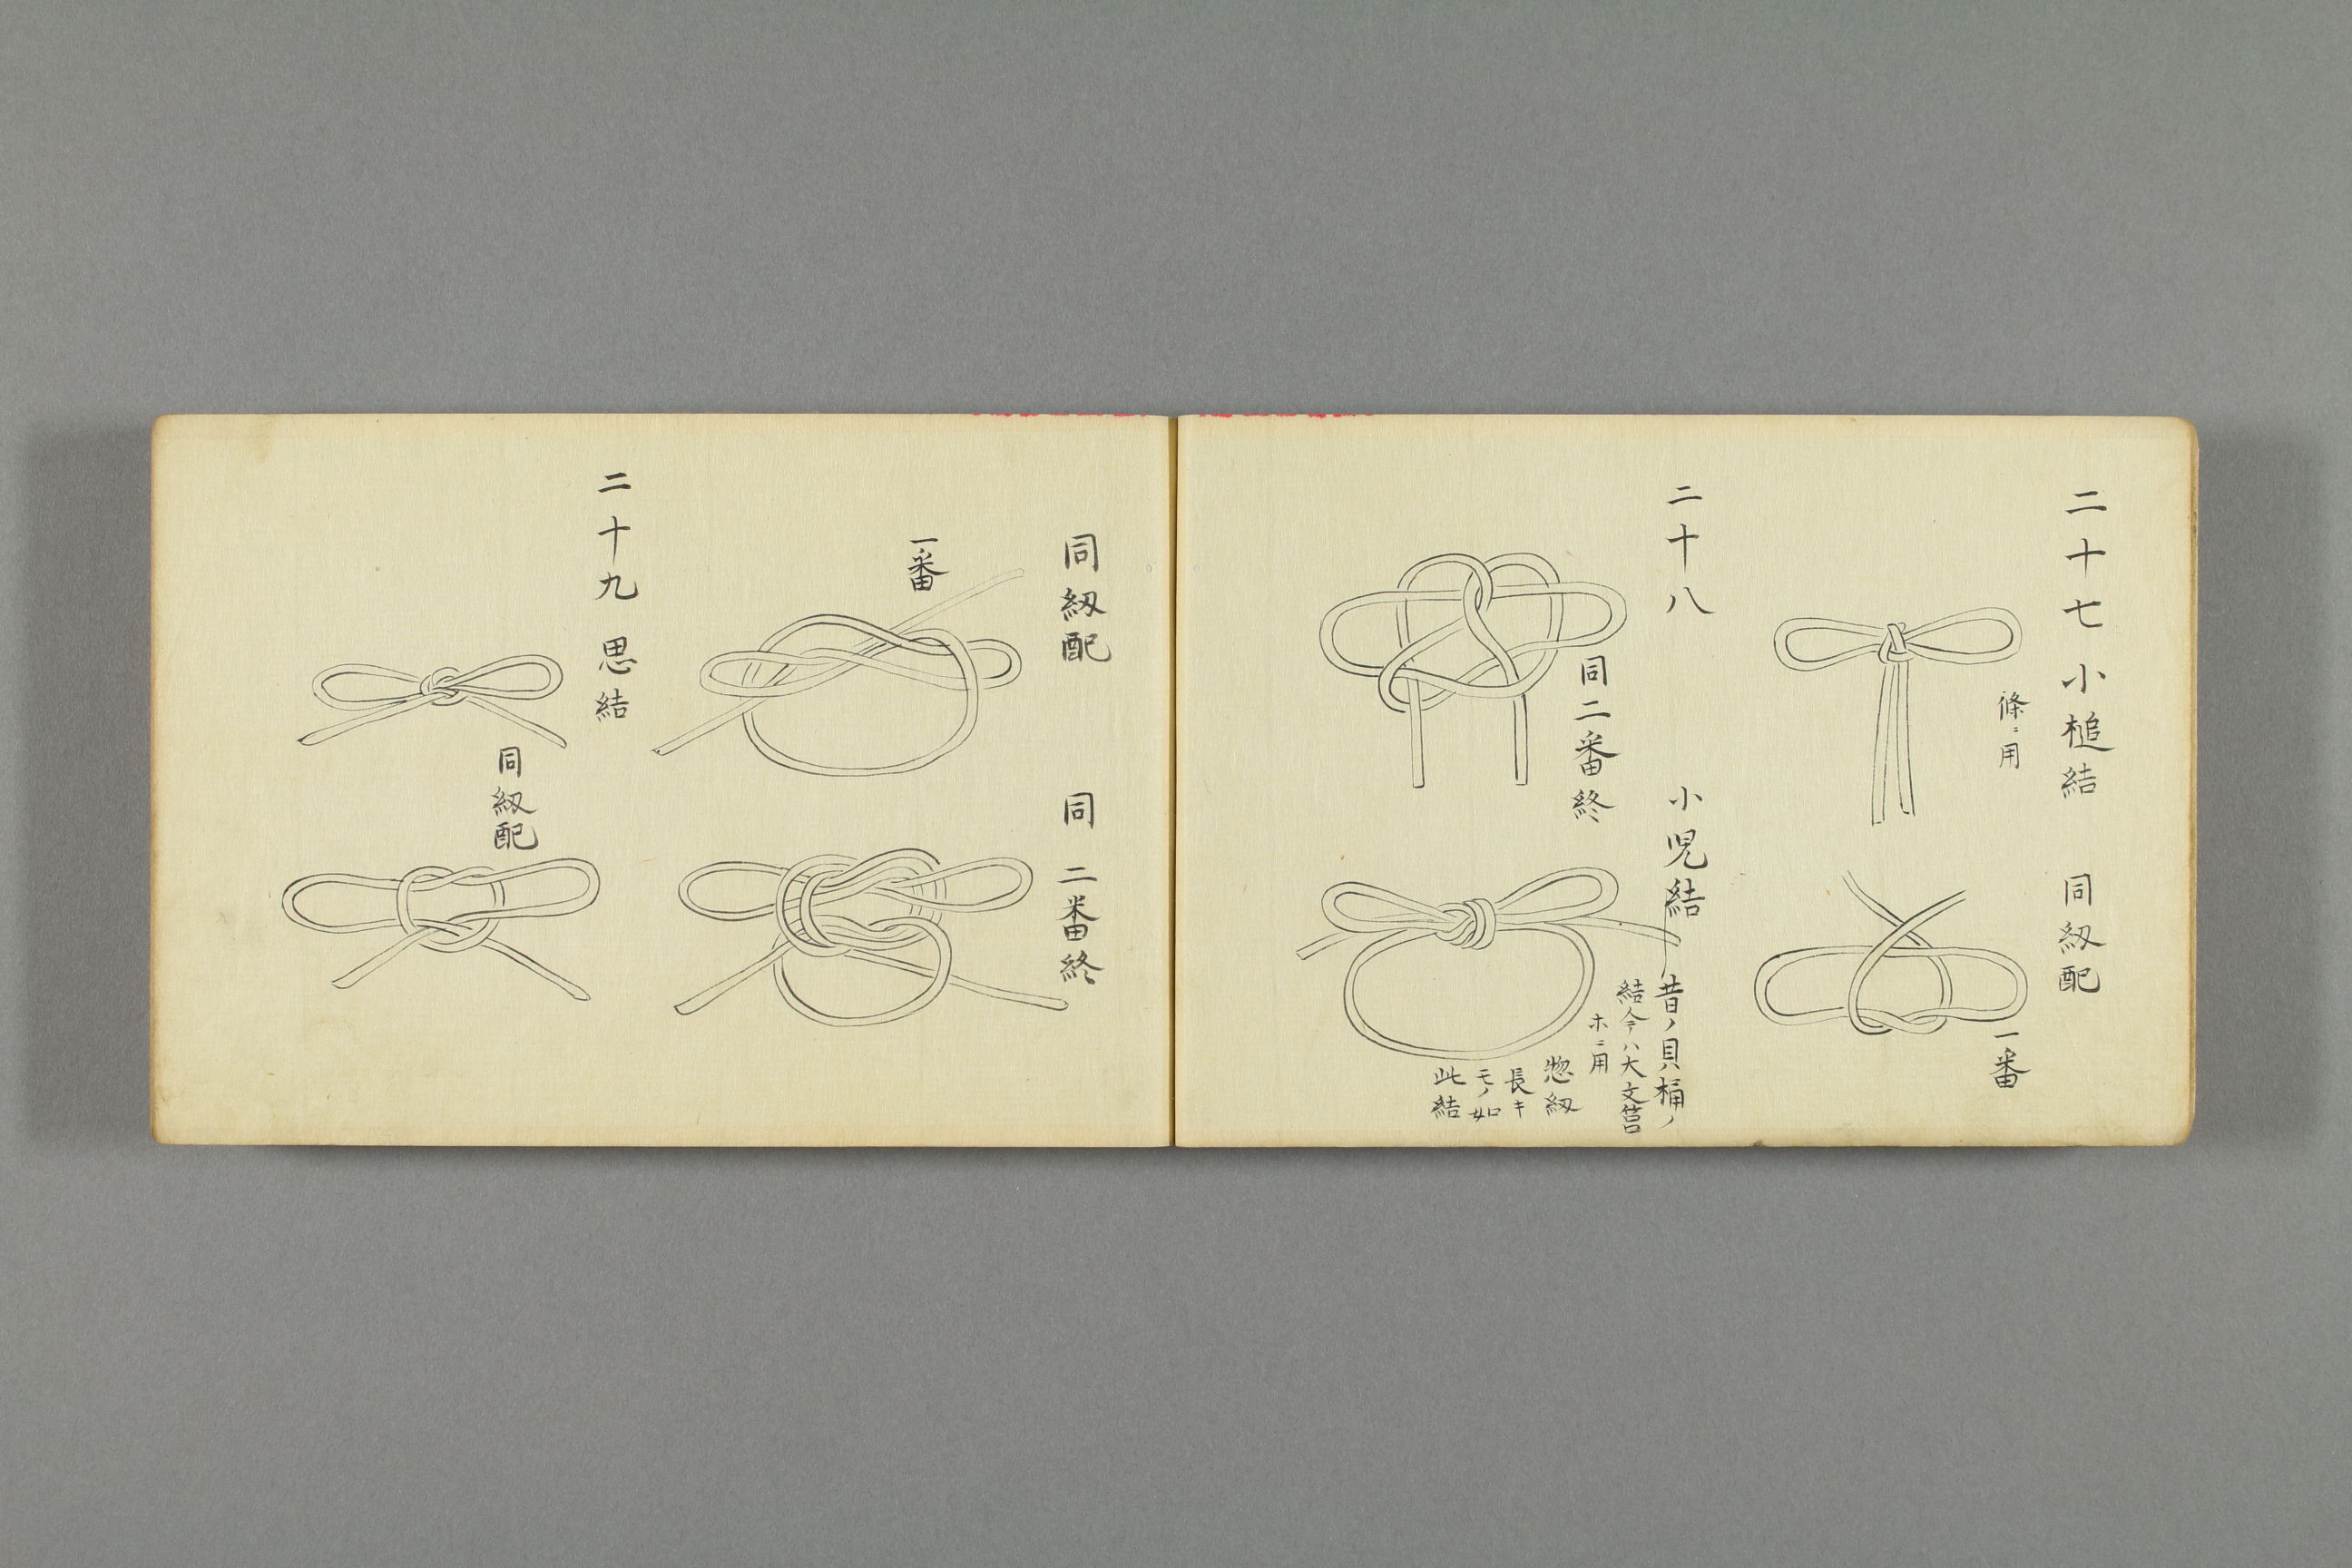 二十七 小槌結
條ニ用
同紉配
一番
同二番終
二十八 小児結
昔ノ貝桶ノ
結今ハ大文筥
ホニ用
惣紉
長キ
モノ如
此結
同紉配
一番
同二番終
二十九 思結
同紉配